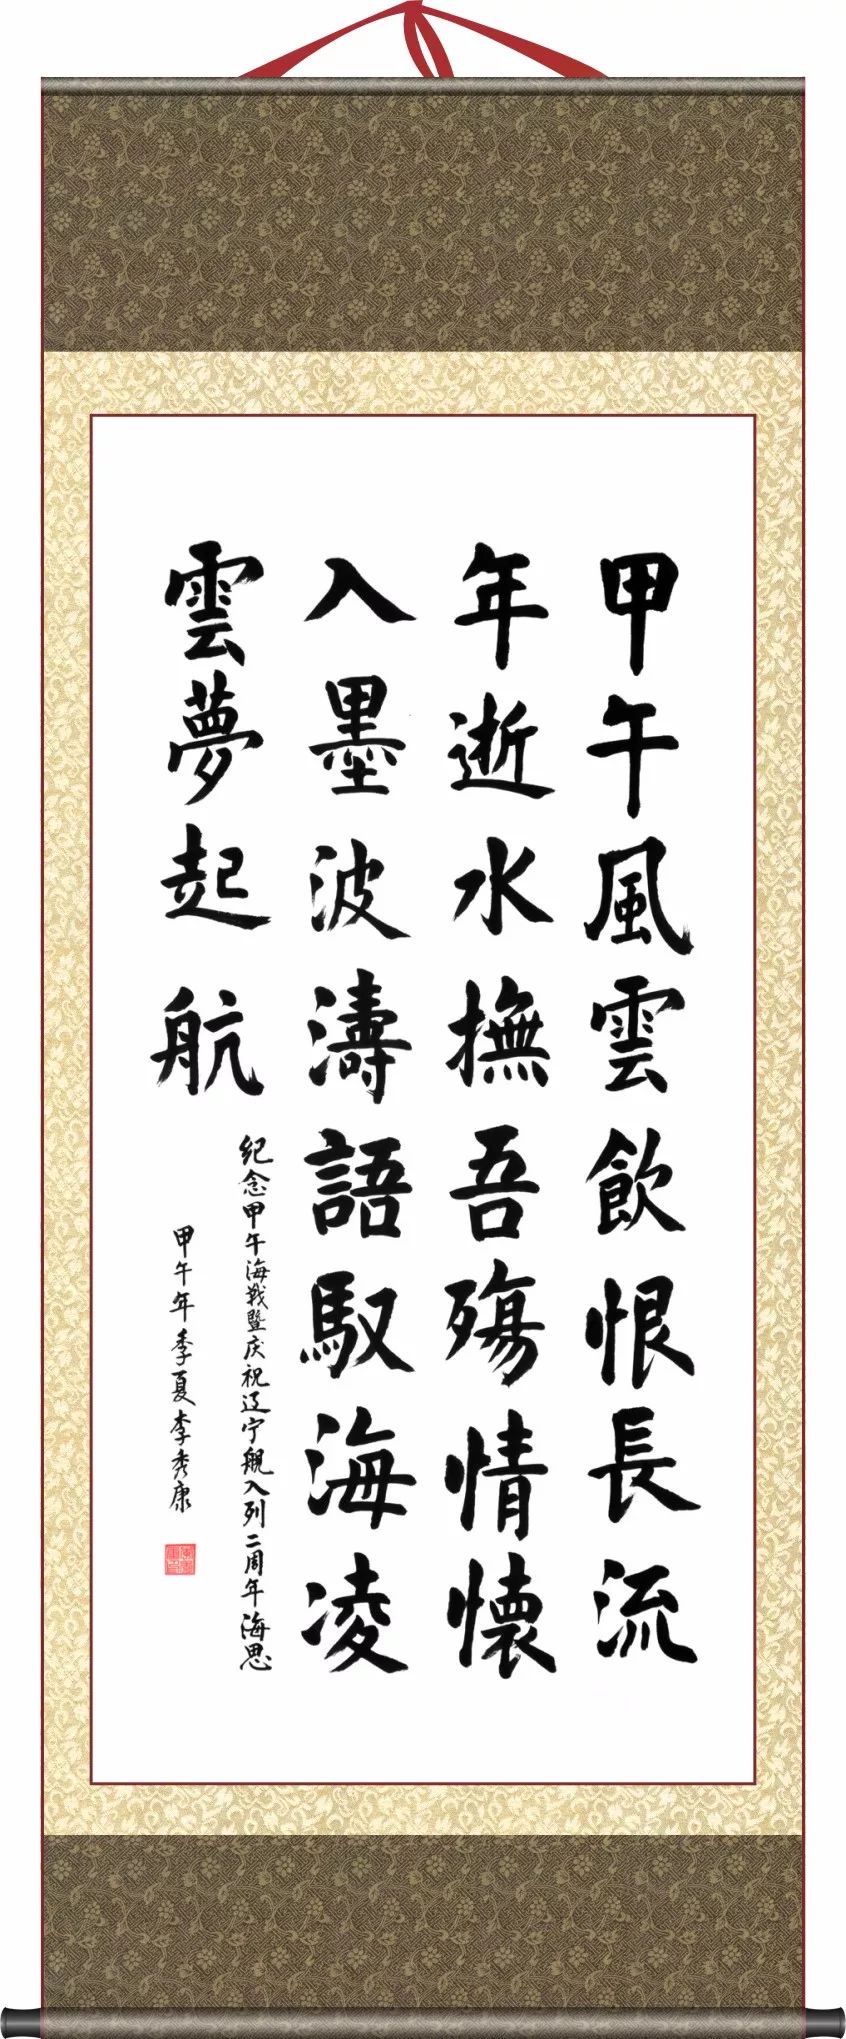 甲午風雲飲恨長流
年逝水撫吾殤情懷
入墨波濤語馭海凌
雲夢起航
纪念甲午海战暨庆祝辽宁舰入列二周年海思
甲午年季夏李秀康